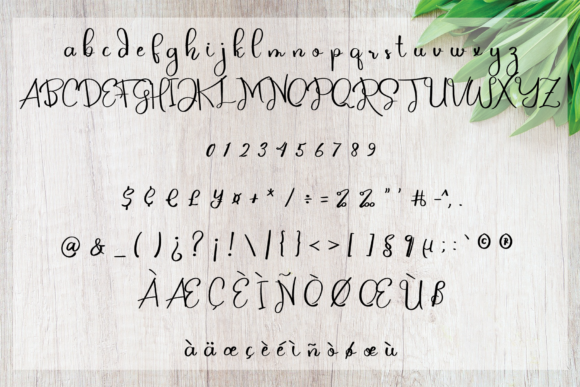 a b c d e f g h i j k l m n o p q r s t u v w x y z
A B C D E F G H I J K L M N O P Q R S T U V W X Y Z
0 1 2 3 4 5 6 7 8 9
$ ¢ € £ ¥ ¤ + * / ÷ = % ‰ " ' # - ^ , .
@ & _ ( ) ¿ ? ¡ ! \ | { } < > [ ] § ¶ µ ; : ` © ®
À Æ Ç È Ì Ñ Ò Ø Œ Ù ß
à ä æ ç è é ì ñ ò ø œ ù